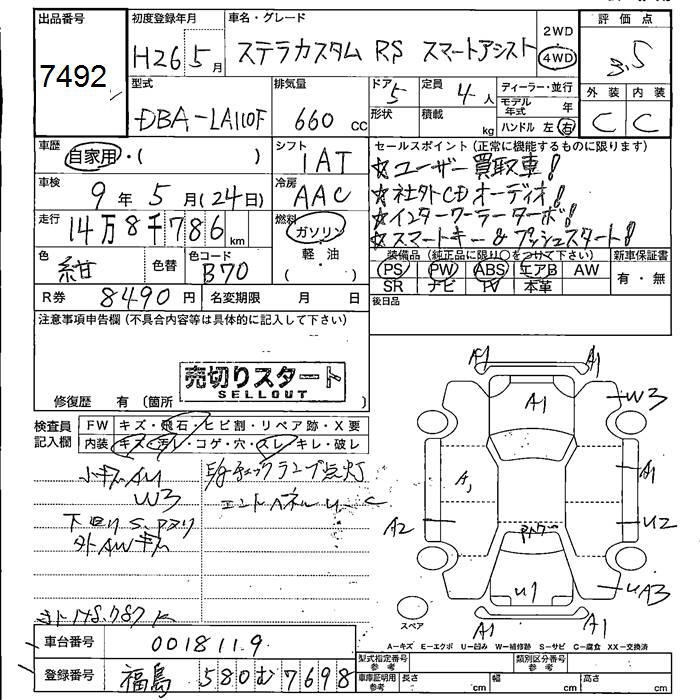 出品番号
7492
初度登録年月
H26 5月
車名・グレード
ステラカスタム RS スマートアシスト
2WD
4WD
評価点
3.5
外装 内装
C C
型式
DBA-LA110F
排気量
660 cc
ドア 5
形状
定員 4人
積載 kg
ディーラー・並行
モデル年式 年
ハンドル 左 右
車歴
自家用・( )
シフト
IAT
車検
9年 5月(24日)
冷房
AAC
走行
14万8千786 km
燃料
ガソリン
軽・油
( )
色
紺
色替
色コード
B70
R券 8490円
名変期限 月 日
セールスポイント(正常に機能するものに限ります)
☆ユーザー買取車!
☆社外CDオーディオ!
☆インタークーラーターボ!
☆スマートキー&プッシュスタート!
装備品(純正品に限り○をつけて下さい)
PS PW ABS エアB AW
SR ナビ TV 本革
新車保証書
有・無
後日品
注意事項申告欄(不具合内容等は具体的に記入して下さい)
売切りスタート
SELLOUT
修復歴 有(箇所 )
検査員記入欄
FW キズ・飛石・ヒビ割・リペア跡・X要
内装 キズ・汚レ・コゲ・穴・スレ・キレ・破レ
小キズAU
W3
E/gチェックランプ点灯
下回りS、
外AWキズ
A1 A1
A1
W3
A1
A2
U2
U1
UA3
A1 A1
スペア
A-キズ E-エクボ U-凹み W-補修跡 S-サビ C-腐食 XX-交換済
車台番号
0018119
登録番号
福島 580 む 7698
型式指定番号 参考
類別区分番号 参考
車庫証明用 参考
長さ cm
幅 cm
高さ cm